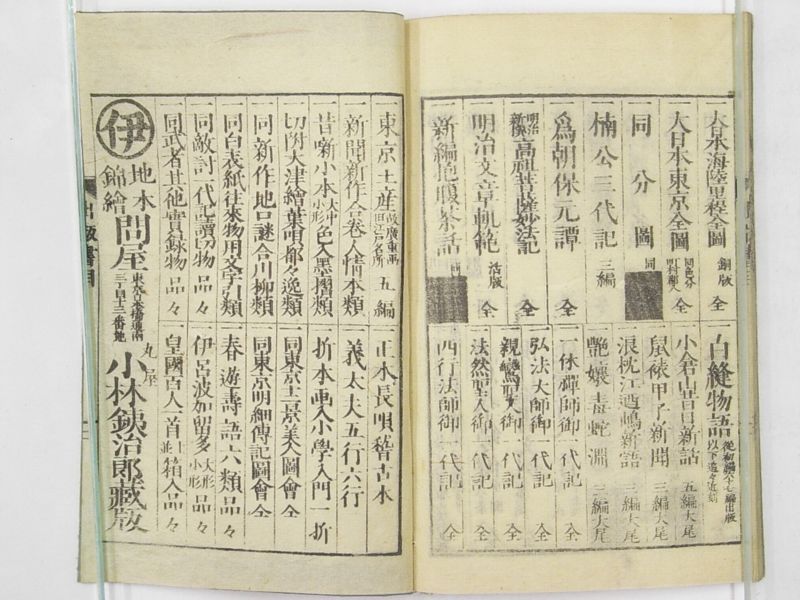 大日本海陸里程全圖 銅版
大日本東京全圖 同色分 町村郡入 全
同分圖 同
楠公三代記 三編
爲朝保元譚 全
明治新撰 高祖菩薩妙法記 全
明治文章軌範 活版 全
新編絶腹茶話 同
白縫物語 従初編六十七編出版 以下追々近刻
小倉山昔日新話 五編大尾
鼠裱甲子新聞 三編大尾
浪枕江の嶋新語 三編大尾
艶孃毒蛇淵 三編大尾
一休禪師御一代記 全
弘法大師御一代記 全
親鸞聖人御一代記 全
法然聖人御一代記 全
西行法師御一代記 全
東京土産 故廣重画 江戸名所 五編
一新聞新作合巻人情本類
一昔噺小本 大中小形 色入墨摺類
一切附大津繪葉唄都々逸類
一同新作地口謎合川柳類
一同白表紙往來物用文字引類
一同敵討一代記讀切物 品々
一同武者其他實録物 品々
一正本長唄稽古本
一義太夫五行六行
一折本画入小學入門 一折
一同東京十二景美人圖會 全
一同東京明細傳記圖會 全
一春遊壽語六類 品々
一伊呂波加留多 大形小形 品々
一皇國百人一首 並箱入 品々
伊
地本
錦繪
問屋 東京日本橋通南 三丁目十三番地
丸屋
小林鉄治郎藏版
出版書目